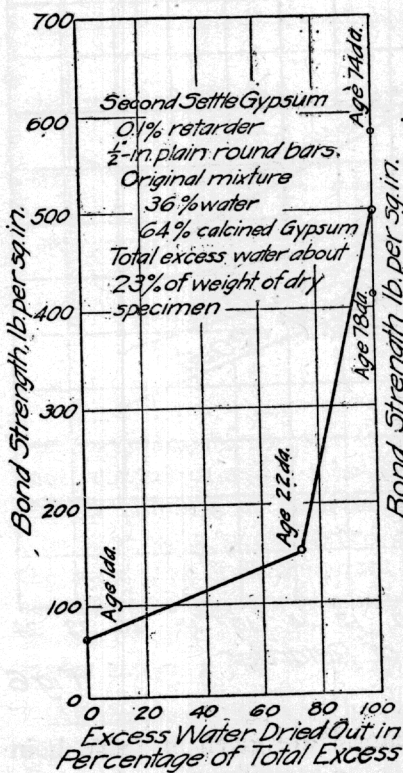 700
600
500
400
300
200
100
0
Bond Strength, lb. per sq. in.
Second Settle Gypsum
0.1% retarder
½-in. plain round bars.
Original mixture
36% water
64% calcined Gypsum
Total excess water about
23% of weight of dry
specimen
Age 1da.
Age 22da.
Age 78da.
Age 74da.
Bond Strength, lb. per sq. in.
0 20 40 60 80 100
Excess Water Dried Out in
Percentage of Total Excess